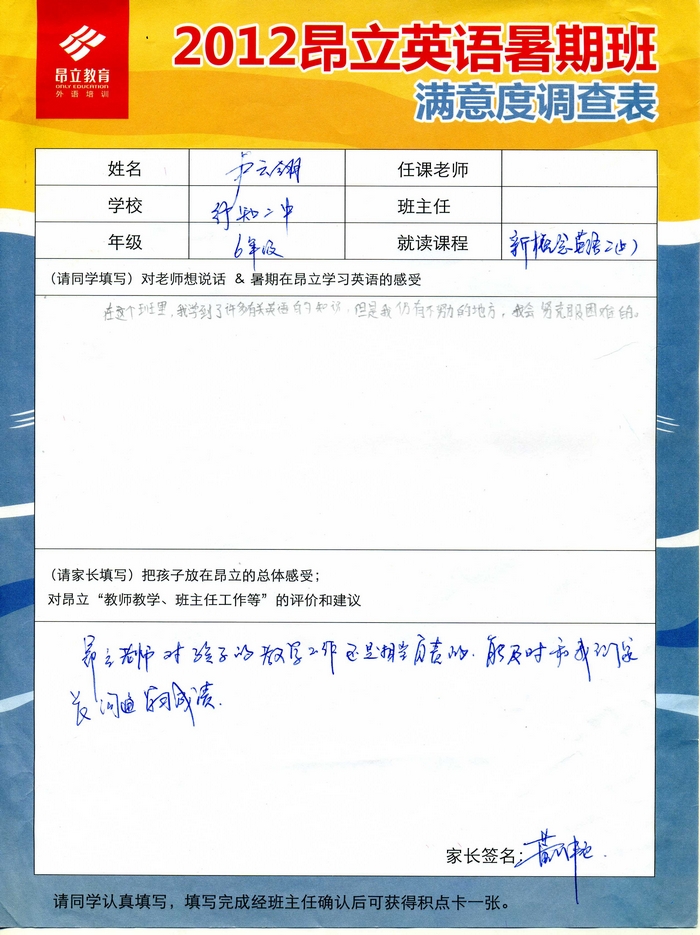 昂立教育
ONLY EDUCATION
外语培训
2012昂立英语暑期班
满意度调查表
姓名 卢云翎 任课老师
学校 行知二中 班主任
年级 6年级 就读课程 新概念英语二(上)
(请同学填写)对老师想说话 & 暑期在昂立学习英语的感受
在这个班里,我学到了许多有关英语的知识,但是我仍有不努力的地方,我会努克服困难的。
(请家长填写)把孩子放在昂立的总体感受;
对昂立“教师教学、班主任工作等”的评价和建议
昂立老师对孩子的教学工作还是相当负责的.能及时和我们家
长沟通 成绩.
家长签名:
请同学认真填写,填写完成经班主任确认后可获得积点卡一张。